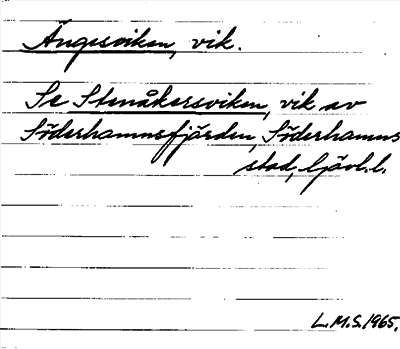 Ängesviken, vik.
Se Stenåkersviken, vik av
Söderhamnsfjärden, Söderhamns
stad, Gävl.l.
L.M.S. 1965.